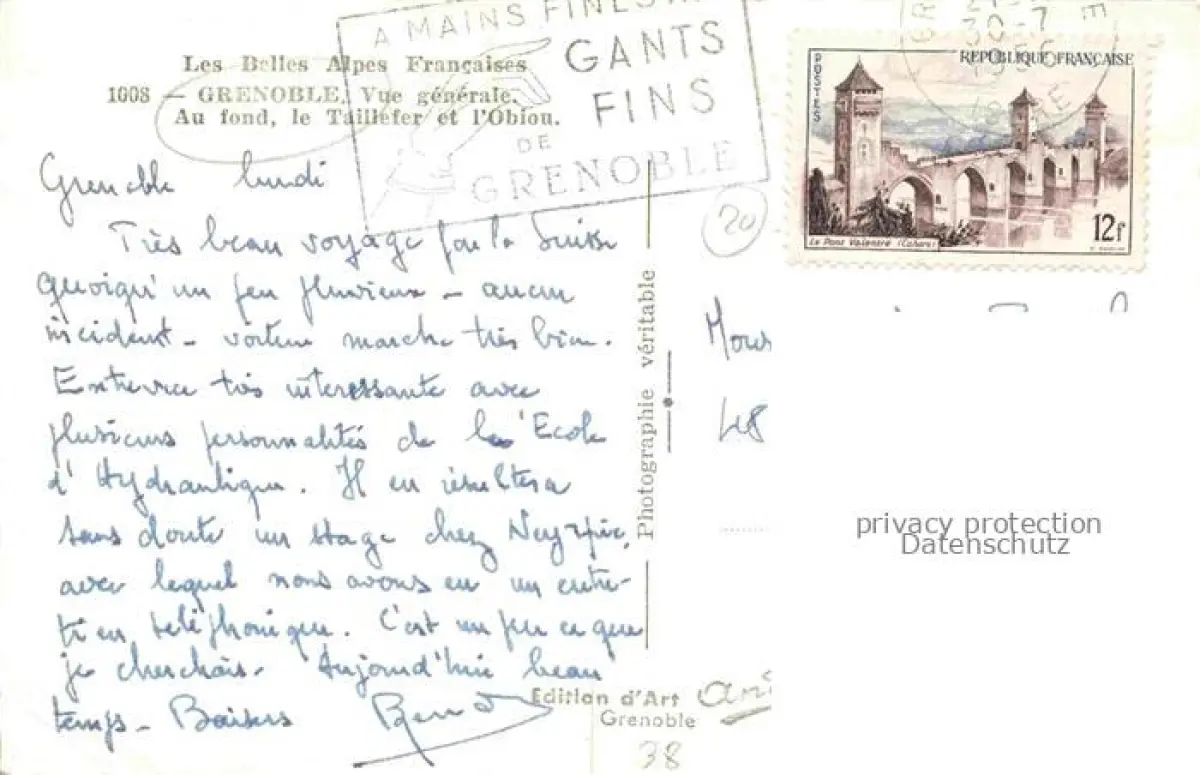 Les Belles Alpes Françaises
1008 — GRENOBLE. Vue générale.
Au fond, le Taillefer et l'Obiou.
A MAINS FINES
GANTS
FINS
DE
GRENOBLE
30-7
POSTES
REPUBLIQUE FRANÇAISE
Le Pont Valentré (Cahors)
12f
20
Grenoble lundi
Très beau voyage par la Suisse
quoiqu'un peu pluvieux - aucun
incident - voiture marche très bien.
Entrevue très intéressante avec
plusieurs personnalités de l'Ecole
d'Hydraulique. Il en résultera
sans doute un stage chez Neyrpic,
avec lequel nous avons eu un entre-
tien téléphonique. C'est un peu ce que
je cherchais. Aujourd'hui beau
temps - Baisers
Photographie véritable
48
privacy protection
Datenschutz
Edition d'Art
Grenoble
38